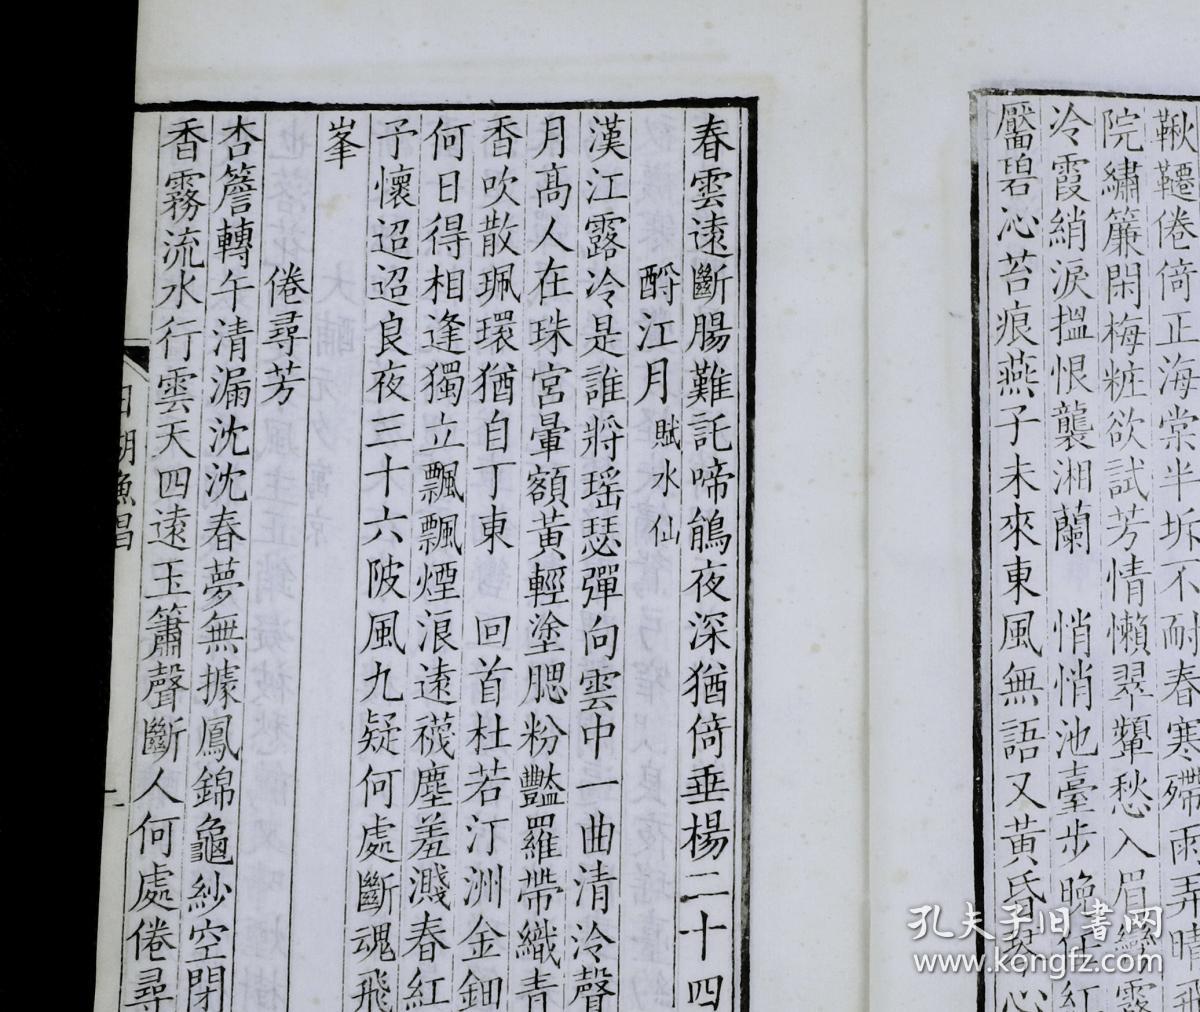 鞦韆倦倚正海棠半坼不耐春寒殢雨弄晴飛
院繡簾閑梅粧欲試芳情懶翠顰愁入眉彎露
冷霞綃淚搵恨襲湘蘭　悄悄池臺步晚任紅
靨碧沁苔痕燕子未來東風無語又黃昏琴心
春雲遠斷腸難託啼鵑夜深猶倚垂楊二十四
酹江月 賦水仙
漢江露冷是誰將瑤瑟彈向雲中一曲清泠聲
月高人在珠宮暈額黃輕塗腮粉豔羅帶織青
香吹散珮環猶自丁東　回首杜若汀洲金鈿
何日得相逢獨立飄飄煙浪遠襪塵羞濺春紅
予懷迢迢良夜三十六陂風九疑何處斷魂飛
峯
倦尋芳
杏簷轉午清漏沈沈春夢無據鳳錦龜紗空閉
香霧流水行雲天四遠玉簫聲斷人何處倦尋
孔夫子旧书网
www.kongfz.com